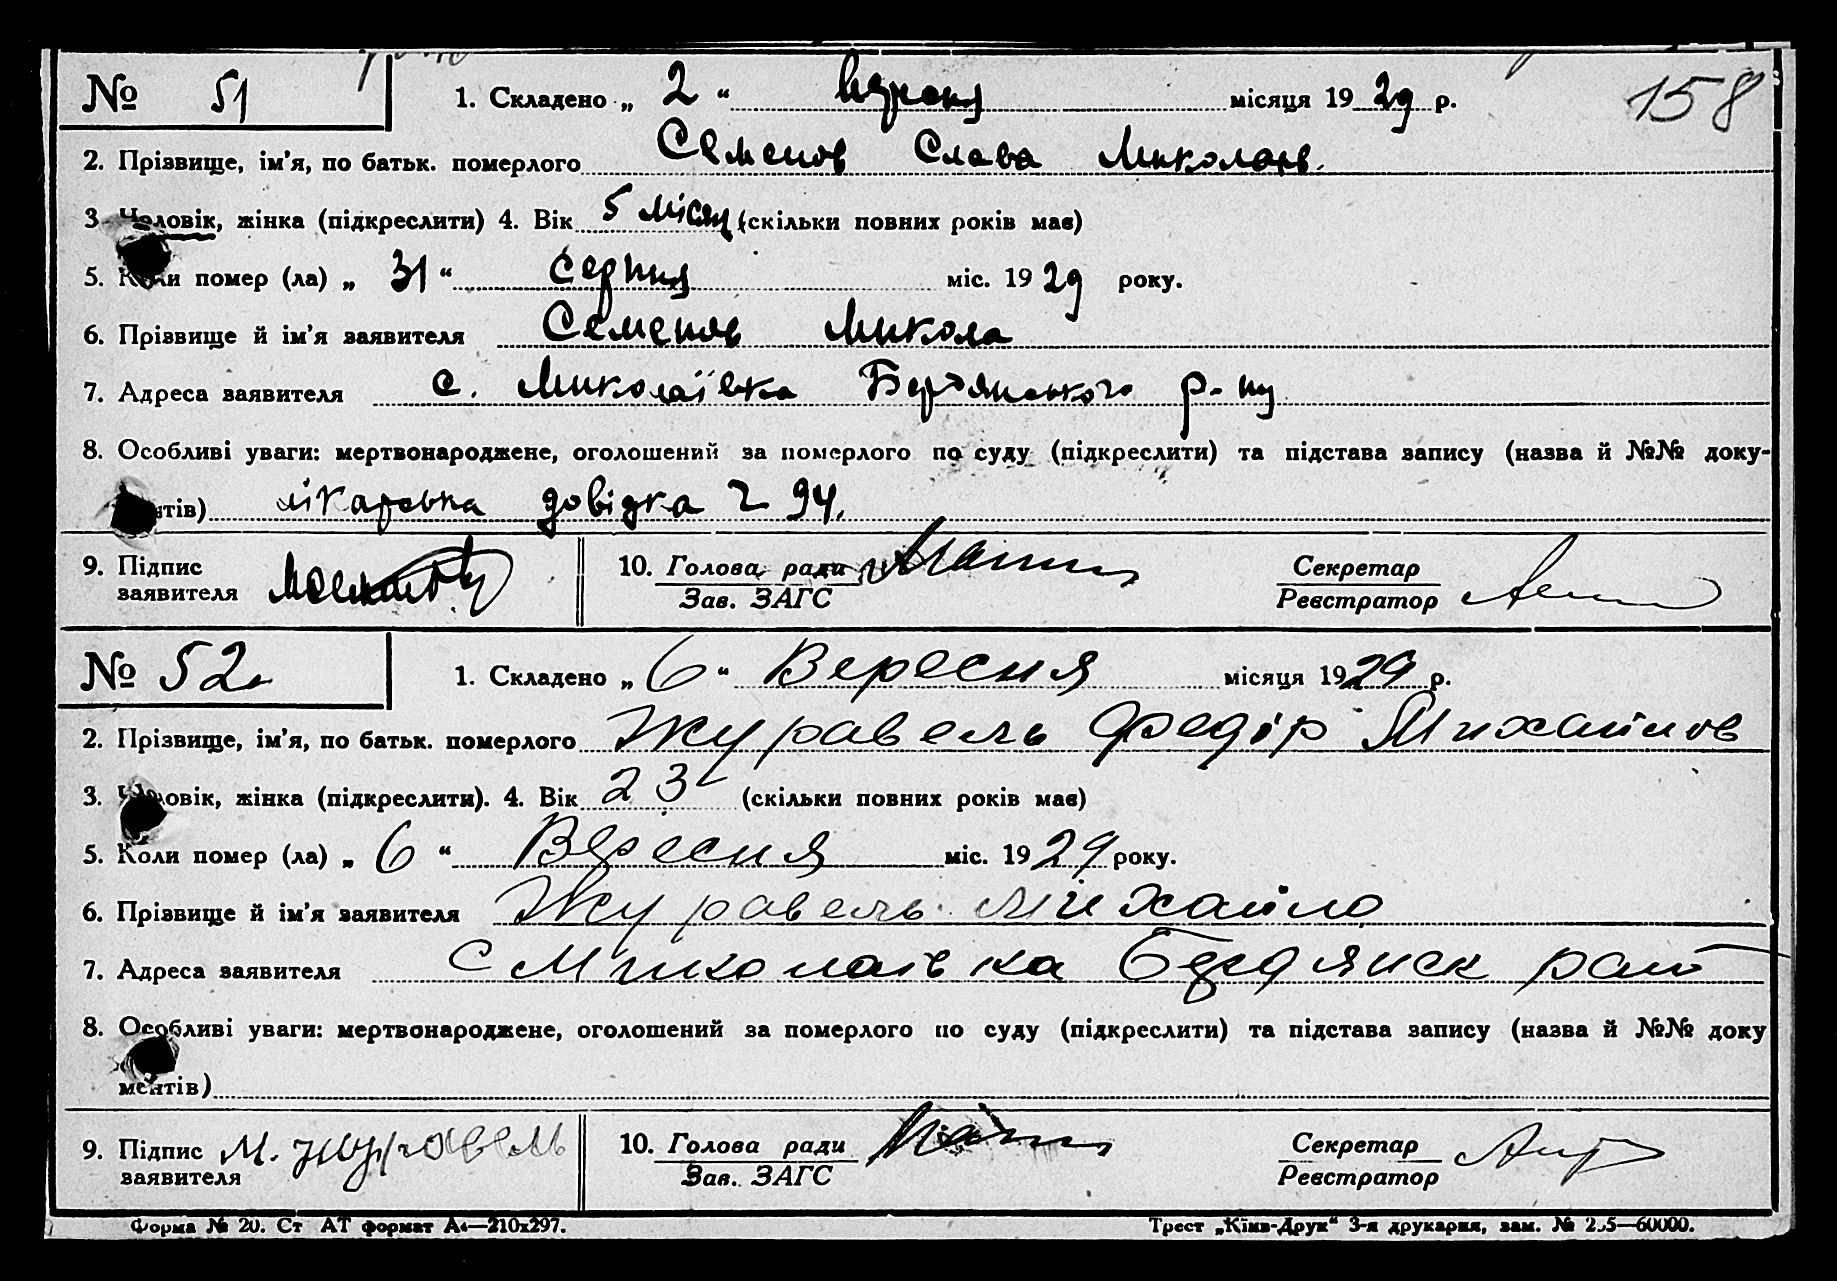 № 51 1. Складено „ 2 “ місяця 19 29 р. 158
2. Прізвище, ім’я, по батьк. померлого Семенов Слава Миколаєв.
3 Чоловік, жінка (підкреслити) 4. Вік 5 місяц (скільки повних років має)
5. Коли помер (ла) „ 31 “ Серпня міс. 19 29 року.
6. Прізвище й ім’я заявителя Семенов Микола
7. Адреса заявителя с. Миколаївка Бердянського р-ну
8. Особливі уваги: мертвонароджене, оголошений за померлого по суду (підкреслити) та підстава запису (назва й №№ доку-
ентів) лікарська довідка 94.
9. Підпис 10. Голова ради Секретар
заявителя Зав. ЗАГС Реєстратор
№ 52 1. Складено „ 6 “ Вересня місяця 19 29 р.
2. Прізвище, ім’я, по батьк. померлого Журавель Федір Михайлов
3. Чоловік, жінка (підкреслити). 4. Вік 23 (скільки повних років має)
5. Коли помер (ла) „ 6 “ Вересня міс. 19 29 року.
6. Прізвище й ім’я заявителя Журавель Михайло
7. Адреса заявителя с Миколаівка Бердянск рай
8. Особливі уваги: мертвонароджене, оголошений за померлого по суду (підкреслити) та підстава запису (назва й №№ доку
ментів)
9. Підпис М. Журавель 10. Голова ради Секретар
заявителя Зав. ЗАГС Реєстратор
Форма № 20. Ст АТ формат А4—210х297. Трест „Київ-Друк“ 3-я друкарня, зам. №